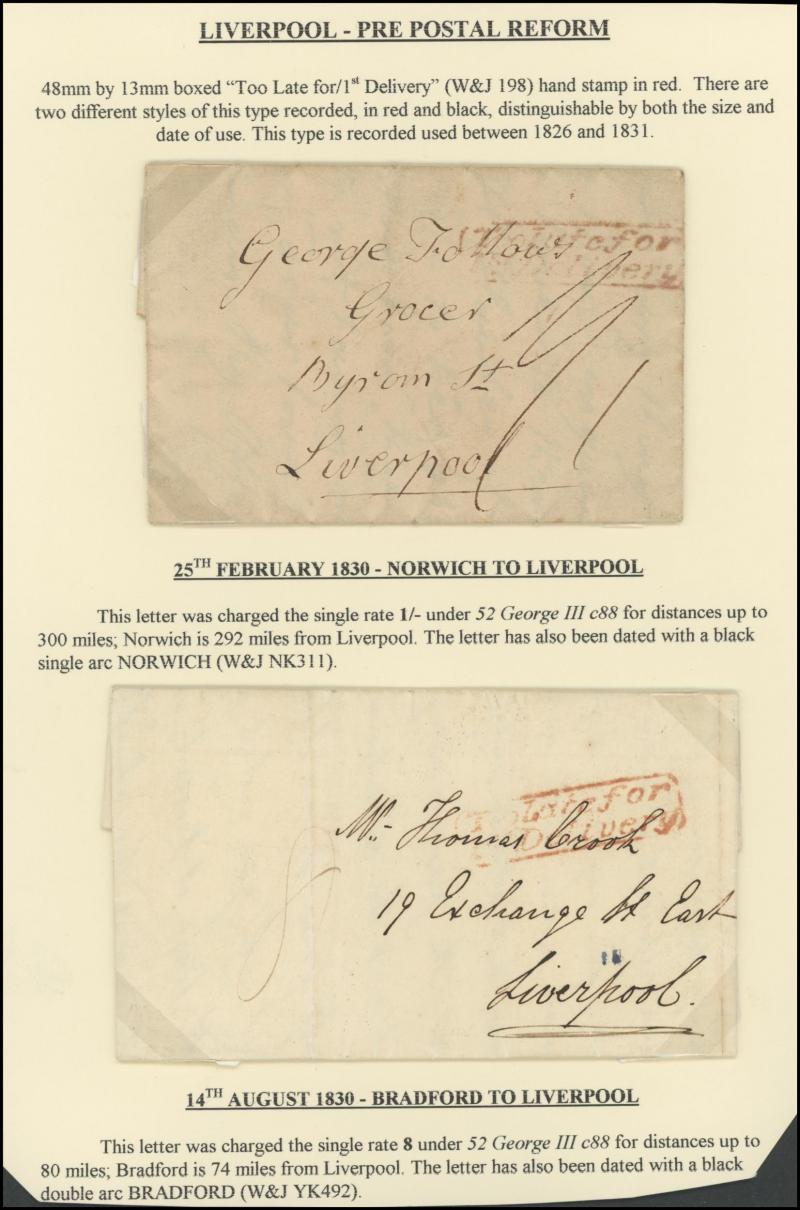 LIVERPOOL - PRE POSTAL REFORM
48mm by 13mm boxed “Too Late for/1st Delivery” (W&J 198) hand stamp in red. There are
two different styles of this type recorded, in red and black, distinguishable by both the size and
date of use. This type is recorded used between 1826 and 1831.
Late for
Delivery
George Follows
Grocer
Byrom St
Liverpool
25TH FEBRUARY 1830 - NORWICH TO LIVERPOOL
This letter was charged the single rate 1/- under 52 George III c88 for distances up to
300 miles; Norwich is 292 miles from Liverpool. The letter has also been dated with a black
single arc NORWICH (W&J NK311).
Late for
Delivery
Mr- Thomas Crook
19 Exchange St East
Liverpool.
8
14TH AUGUST 1830 - BRADFORD TO LIVERPOOL
This letter was charged the single rate 8 under 52 George III c88 for distances up to
80 miles; Bradford is 74 miles from Liverpool. The letter has also been dated with a black
double arc BRADFORD (W&J YK492).